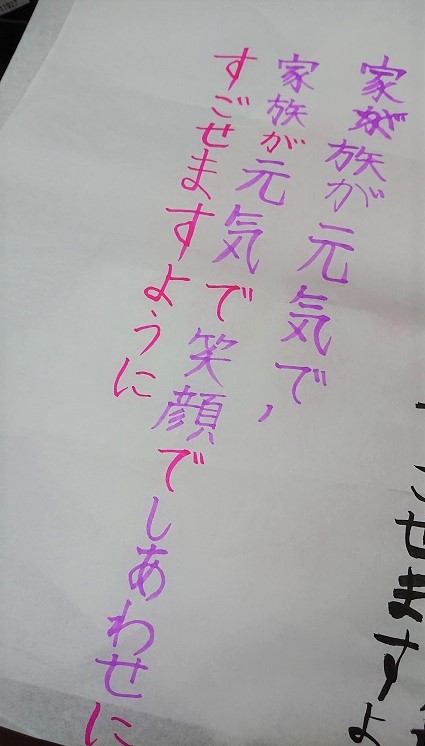 せますよ
家族が元気で,
家族が元気で笑顔でしあわせに
すごせますように